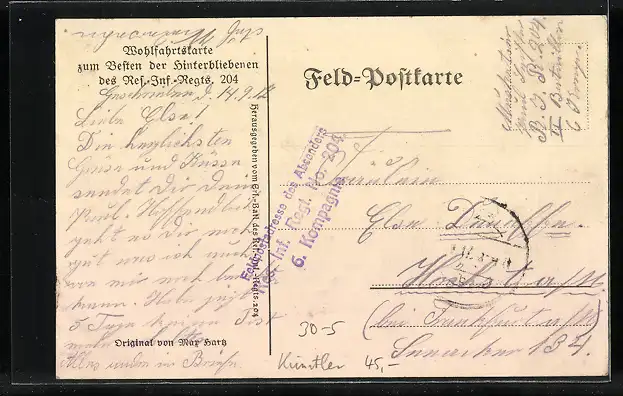 Wohlfahrtskarte
zum Besten der Hinterbliebenen
des Res.-Inf.-Regts. 204
Geschrieben d. 14.9.
Liebe Elsa!
Die herzlichsten
Grüsse und Küsse
sendet Dir Dein
Paul. Hoffentlich
geht es Dir noch
gut was ich auch
von mir noch
kann. Habe jetzt
5 Tage keine Post
Alles andere im Briefe.
Original von Max Hartz
Herausgegeben vom Ers.-Batl. des Res.-Inf.-Regts. 204
Feld-Postkarte
Musketier
R. I. R. 204
II Bataillon
6 Komp.
Feldpostadresse des Absenders
Res. Inf. Regt. No. 204
6. Kompagnie
Fräulein
Elsa
Höchst a/M.
(bei Frankfurt a/M
134.
30-5
Künstler 45,-